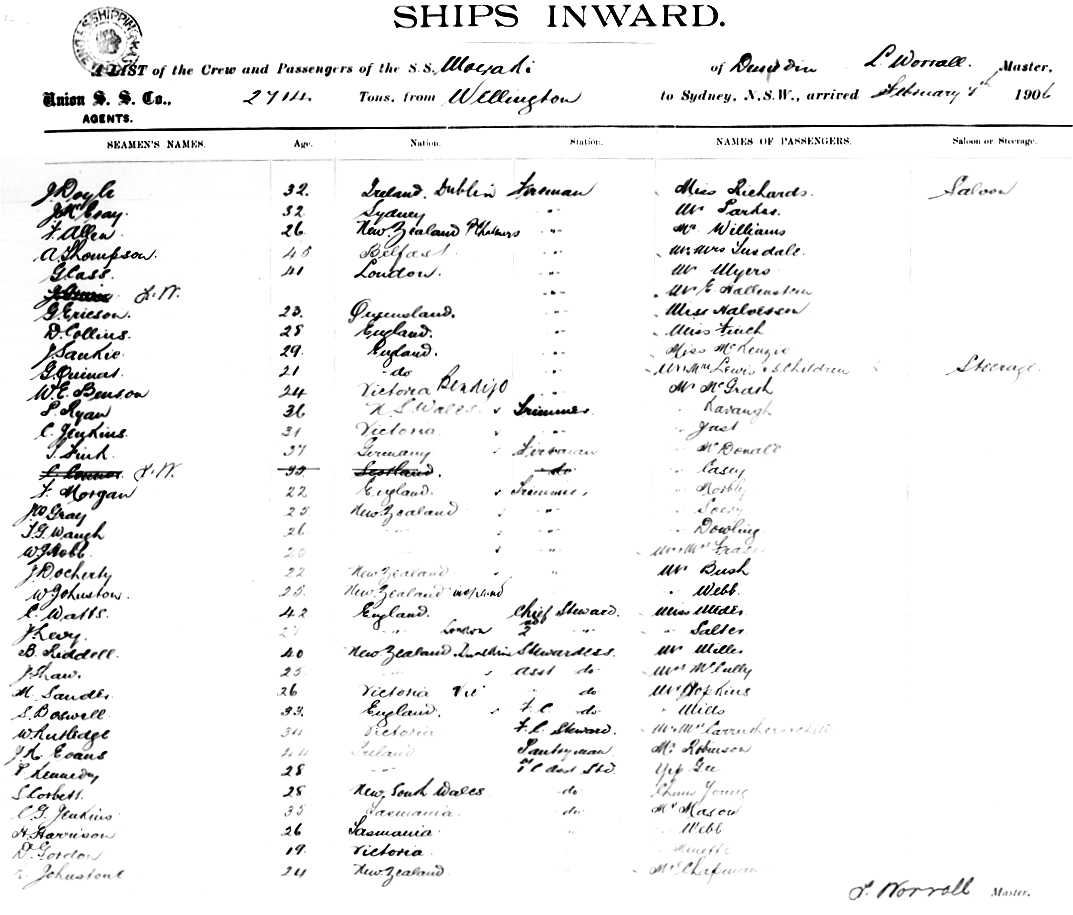 SHIPS INWARD.
A LIST of the Crew and Passengers of the S.S. Moeraki of Dunedin L Worrall. Master,
Union S. S. Co., 2714. Tons, from Wellington to Sydney, N.S.W., arrived February 1906
AGENTS.
SEAMEN'S NAMES. Age. Nation. Station. NAMES OF PASSENGERS. Saloon or Steerage.
J. Doyle 32. Ireland. Dublin Fireman Miss Richards. Saloon
32 Sydney " Mr Parkes.
F. Allen 26 New Zealand P Chalmers " Mr Williams
A Thompson. 45 Belfast " Mr Mrs
G Cass. 41 London. " Mr Myers
L.W. " Mr E Hallenstein
G. Ericson. 23. Queensland. " Miss Halvorsen
D. Collins. 28 England. " Miss Finch
J Sankie. 29. England. " Miss McKenzie
21 do " Mr Mrs Lewis & 5 Children Steerage.
W.E. Benson 24 Victoria Bendigo " Mr McGrath
P. Ryan 36 N. S. Wales Trimmer. " Kavangh
C. Jenkins. 31 Victoria " " Just
T. Fink. 37 Germany Fireman " McDonald
C. Connor L.W. 35 Scotland. do " Casey
F. Morgan 22 England. Trimmer. "
J W Gray 25 New Zealand " "
T. G. Waugh 26 " " " Dowling
W J Robb. 20 " " Mr & Mrs
J Docherty 22 New Zealand " Mr Bush
W Johnston. 25. New Zealand " Webb.
E. Watts. 42 England. Chief Steward. Miss
J. Levy. " London 2nd " " Salter
B. Riddell. 40 New Zealand. Dunedin Stewardess. Mr Miller
J. Shaw. 25 " asst do Mrs McCully
M. Sander. 26 Victoria " do Mr Hopkins
S. Boswell 33 England. F. C. do " Mills
W Rutledge 34 Victoria F. C. Steward. Mr Mrs
J. K. Evans 44 Ireland Pantryman Mr Robinson
P Kennedy 28 " C asst Std. Yip Gee
S Corbett. 28 New South Wales do Young
C. G. Jenkins 35 Tasmania do Mr Mason
H. Harrison 26 Tasmania " " Webb
D. Gordon 19. Victoria "
Johnstone 24 New Zealand. Chapman
L. Worrall Master.